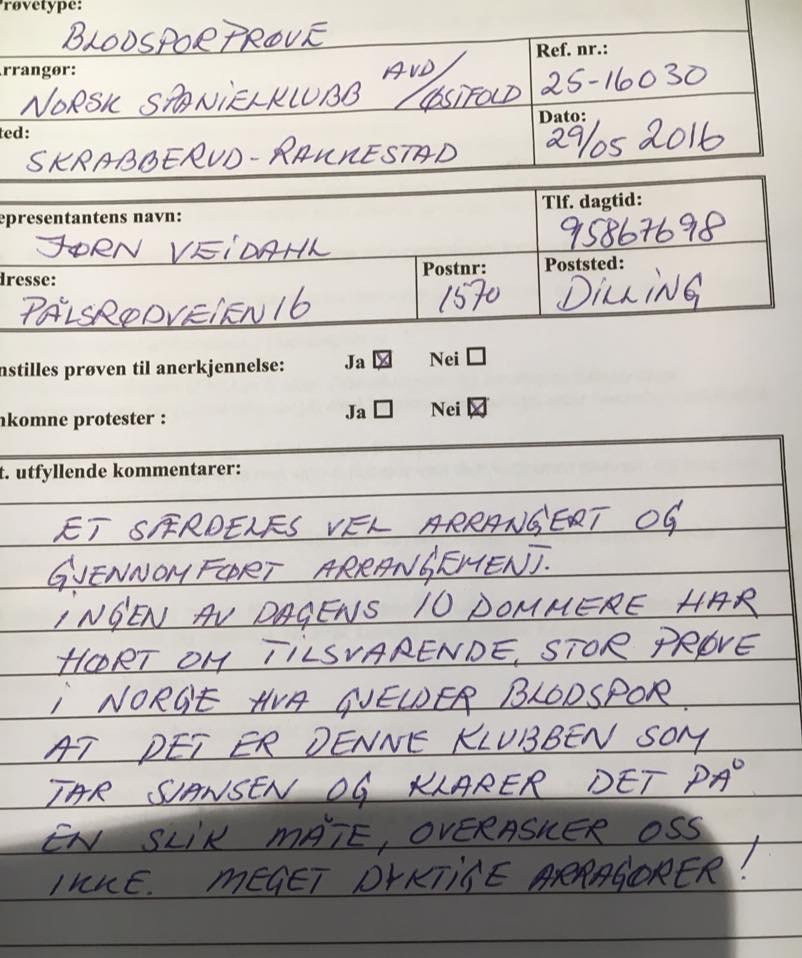 røvetype:
BLODSPORPRØVE
rrangør:
NORSK SPANIELKLUBB AVD/ØSTFOLD
Ref. nr.:
25-16030
ted:
SKRABBERUD - RAKKESTAD
Dato:
29/05 2016
epresentantens navn:
JØRN VEIDAHL
Tlf. dagtid:
95867698
dresse:
PÅLSRØDVEIEN 16
Postnr:
1570
Poststed:
DILLING
nstilles prøven til anerkjennelse: Ja ☒ Nei ☐
nkomne protester : Ja ☐ Nei ☒
t. utfyllende kommentarer:
ET SÆRDELES VEL ARRANGERT OG
GJENNOMFØRT ARRANGEMENT.
INGEN AV DAGENS 10 DOMMERE HAR
HØRT OM TILSVARENDE, STOR PRØVE
I NORGE HVA GJELDER BLODSPOR.
AT DET ER DENNE KLUBBEN SOM
TAR SJANSEN OG KLARER DET PÅ
EN SLIK MÅTE, OVERASKER OSS
IKKE. MEGET DYKTIGE ARRAGØRER!